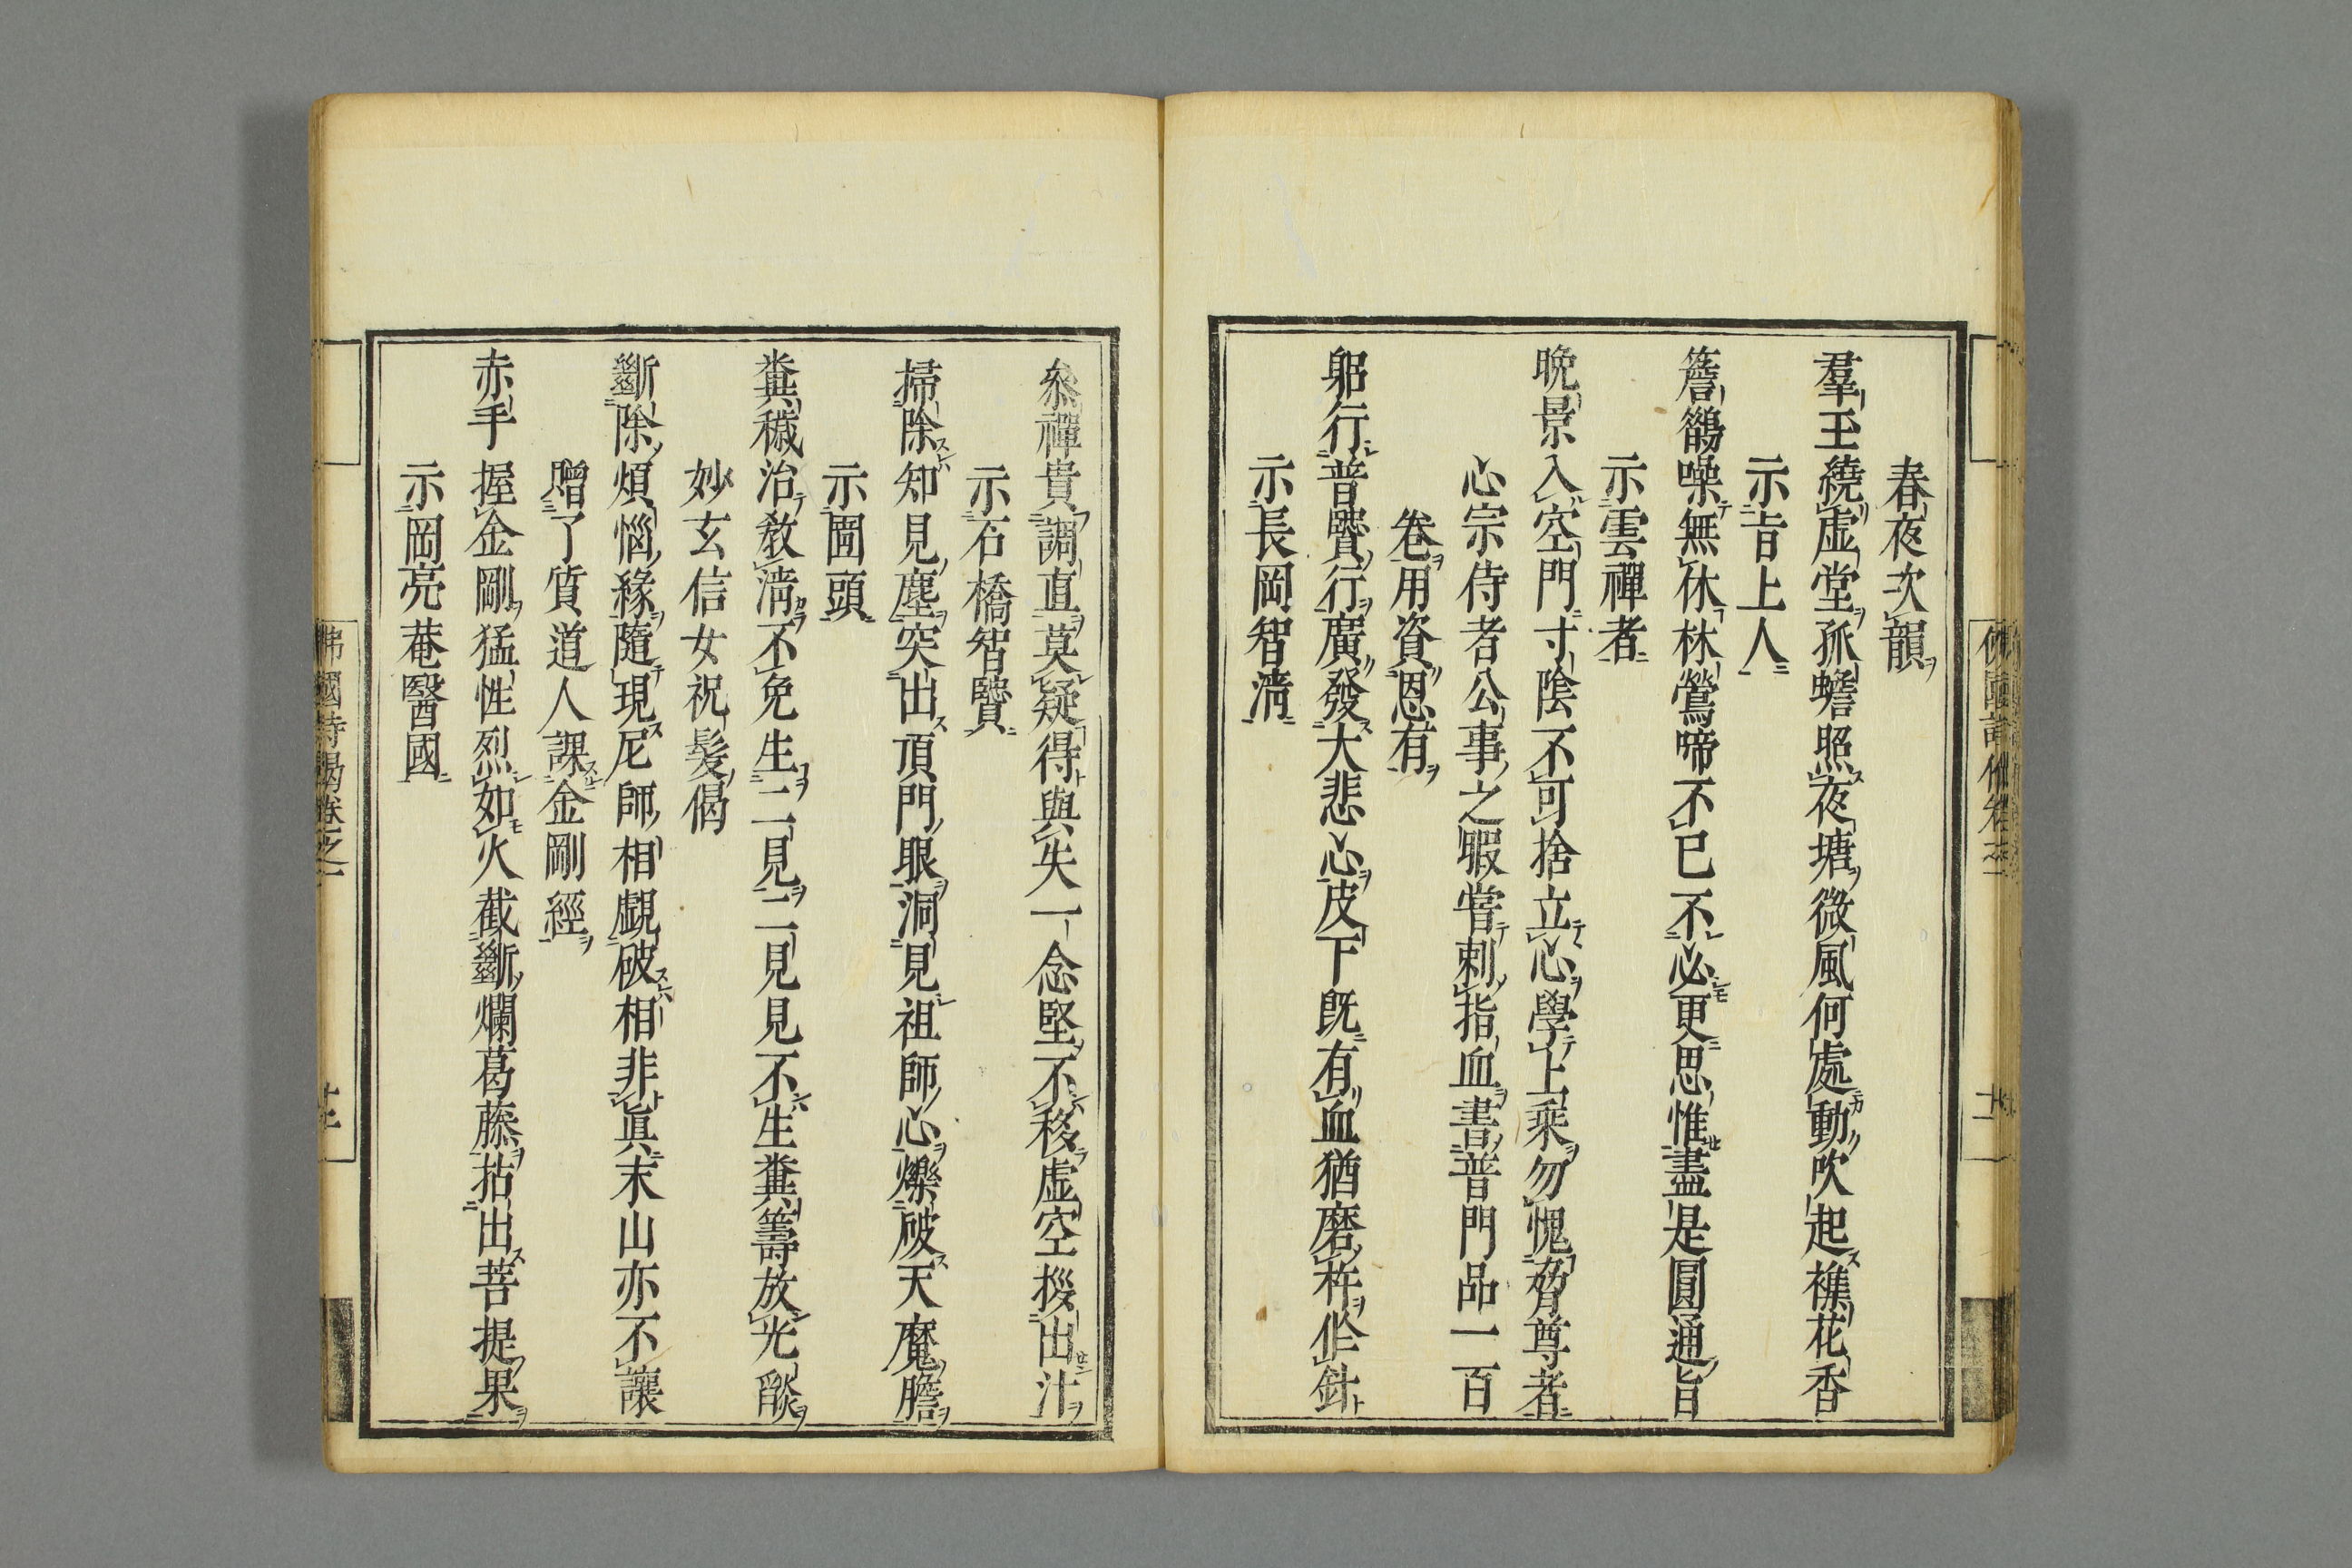 春夜次韻
羣玉繞虛堂孤蟾照夜塘微風何處動吹起樵花香
示旨上人
簷鶺噪無休林鶯啼不已不必更思惟盡是圓通旨
示雲禪者
晩景入空門寸陰不可捨立心學上乘勿愧脅尊者
心宗侍者公事之暇嘗刺指血書普門品一百
卷用資恩有
躬行普賢行廣發大悲心皮下旣有血猶磨杵作針
示長岡智淸
叅禪貴調直莫疑得與失一念堅不移虛空拶出汁
示石橋智賢
掃除知見塵突出頂門眼洞見祖師心爍破天魔膽
示圊頭
糞穢治敎淸不免生二見二見見不生糞籌放光燄
妙玄信女祝髮偈
斷除煩惱緣隨現尼師相覷破相非眞末山亦不讓
贈了質道人課金剛經
赤手握金剛猛性烈如火截斷爛葛藤拈出菩提果
示岡亮菴醫國
佛國詩偈卷之一